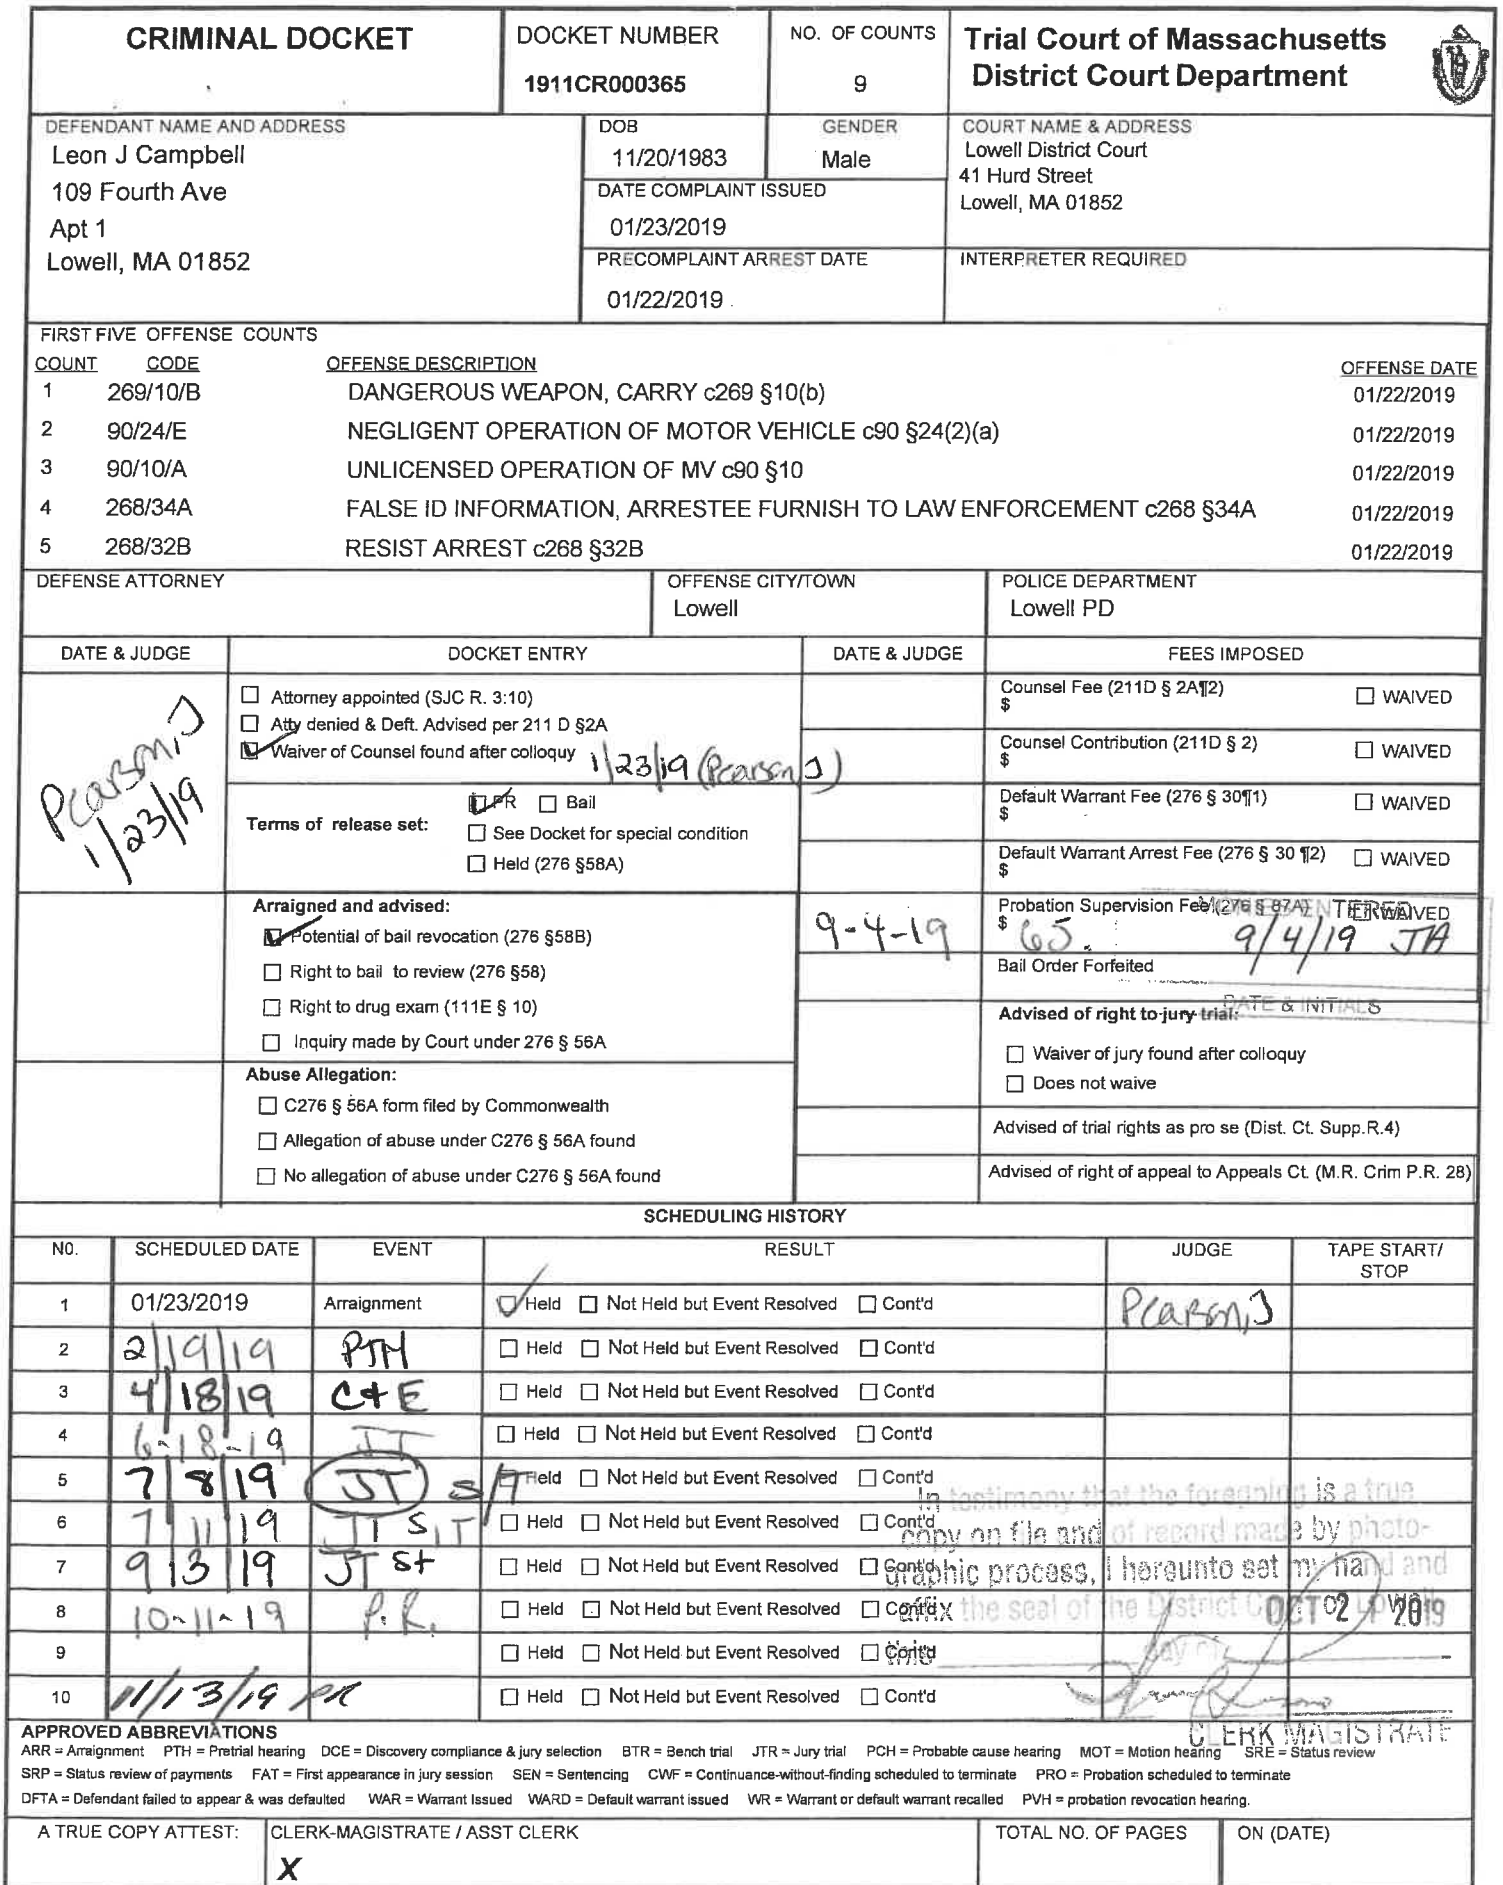 CRIMINAL DOCKET
DOCKET NUMBER
1911CR000365
NO. OF COUNTS
9
Trial Court of Massachusetts
District Court Department
DEFENDANT NAME AND ADDRESS
Leon J Campbell
109 Fourth Ave
Apt 1
Lowell, MA 01852
DOB
11/20/1983
GENDER
Male
DATE COMPLAINT ISSUED
01/23/2019
PRECOMPLAINT ARREST DATE
01/22/2019
COURT NAME & ADDRESS
Lowell District Court
41 Hurd Street
Lowell, MA 01852
INTERPRETER REQUIRED
FIRST FIVE OFFENSE COUNTS
COUNT CODE OFFENSE DESCRIPTION OFFENSE DATE
1 269/10/B DANGEROUS WEAPON, CARRY c269 §10(b) 01/22/2019
2 90/24/E NEGLIGENT OPERATION OF MOTOR VEHICLE c90 §24(2)(a) 01/22/2019
3 90/10/A UNLICENSED OPERATION OF MV c90 §10 01/22/2019
4 268/34A FALSE ID INFORMATION, ARRESTEE FURNISH TO LAW ENFORCEMENT c268 §34A 01/22/2019
5 268/32B RESIST ARREST c268 §32B 01/22/2019
DEFENSE ATTORNEY
OFFENSE CITY/TOWN
Lowell
POLICE DEPARTMENT
Lowell PD
DATE & JUDGE DOCKET ENTRY DATE & JUDGE FEES IMPOSED
Pearson, J
1/23/19
Attorney appointed (SJC R. 3:10)
Atty denied & Deft. Advised per 211 D §2A
Waiver of Counsel found after colloquy 1/23/19 (Pearson, J)
Terms of release set:
PR Bail
See Docket for special condition
Held (276 §58A)
Arraigned and advised:
Potential of bail revocation (276 §58B)
Right to bail to review (276 §58)
Right to drug exam (111E § 10)
Inquiry made by Court under 276 § 56A
Abuse Allegation:
C276 § 56A form filed by Commonwealth
Allegation of abuse under C276 § 56A found
No allegation of abuse under C276 § 56A found
Counsel Fee (211D § 2A¶2)
$ WAIVED
Counsel Contribution (211D § 2)
$ WAIVED
Default Warrant Fee (276 § 30¶1)
$ WAIVED
Default Warrant Arrest Fee (276 § 30 ¶2)
$ WAIVED
9-4-19
Probation Supervision Fee (276 § 87A) WAIVED
$ 65. 9/4/19 JA
Bail Order Forfeited
DATE & INITIALS
Advised of right to jury trial:
Waiver of jury found after colloquy
Does not waive
Advised of trial rights as pro se (Dist. Ct. Supp.R.4)
Advised of right of appeal to Appeals Ct. (M.R. Crim P.R. 28)
SCHEDULING HISTORY
NO. SCHEDULED DATE EVENT RESULT JUDGE TAPE START/
STOP
1 01/23/2019 Arraignment Held Not Held but Event Resolved Cont'd Pearson, J
2 2/19/19 PTH Held Not Held but Event Resolved Cont'd
3 4/18/19 C+E Held Not Held but Event Resolved Cont'd
4 6-18-19 JT Held Not Held but Event Resolved Cont'd
5 7/8/19 JT S/T Held Not Held but Event Resolved Cont'd
6 7/11/19 JT S/T Held Not Held but Event Resolved Cont'd
7 9/3/19 JT St Held Not Held but Event Resolved Cont'd
8 10-11-19 P.R. Held Not Held but Event Resolved Cont'd
9 Held Not Held but Event Resolved Cont'd
10 11/13/19 PR Held Not Held but Event Resolved Cont'd
In testimony that the foregoing is a true
copy on file and of record made by photo-
graphic process, I hereunto set my hand and
affix the seal of the District
OCT 2 2019
day of
CLERK MAGISTRATE
APPROVED ABBREVIATIONS
ARR = Arraignment PTH = Pretrial hearing DCE = Discovery compliance & jury selection BTR = Bench trial JTR = Jury trial PCH = Probable cause hearing MOT = Motion hearing SRE = Status review
SRP = Status review of payments FAT = First appearance in jury session SEN = Sentencing CWF = Continuance-without-finding scheduled to terminate PRO = Probation scheduled to terminate
DFTA = Defendant failed to appear & was defaulted WAR = Warrant Issued WARD = Default warrant issued WR = Warrant or default warrant recalled PVH = probation revocation hearing.
A TRUE COPY ATTEST:
CLERK-MAGISTRATE / ASST CLERK
X
TOTAL NO. OF PAGES
ON (DATE)